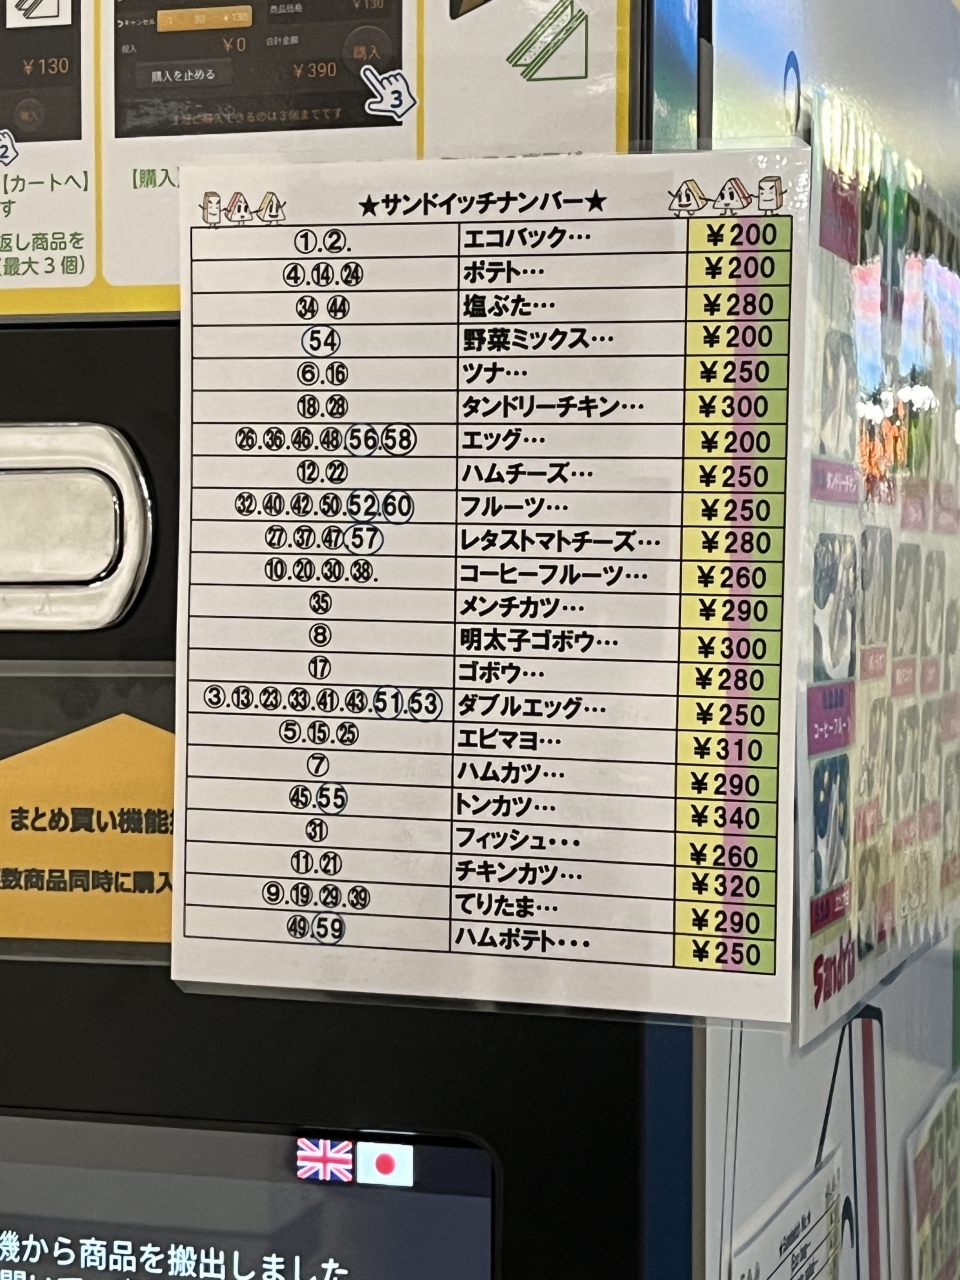 キャンセル
¥130
商品価格
¥130
投入
¥0
合計金額
購入
購入を止める
¥390
¥130
購入
3
2
【カートへ】
す
【購入】
返し商品を
(最大3個)
★サンドイッチナンバー★
①.②. エコバック… ¥200
④.⑭.㉔ ポテト… ¥200
㉞ ㊹ 塩ぶた… ¥280
54 野菜ミックス… ¥200
⑥.⑯ ツナ… ¥250
⑱.㉘ タンドリーチキン… ¥300
㉖.㊱.㊻.㊽.56.58 エッグ… ¥200
⑫.㉒ ハムチーズ… ¥250
㉜.㊵.㊷.㊿.52.60 フルーツ… ¥250
㉗.㊲.㊼.57 レタストマトチーズ… ¥280
⑩.⑳.㉚.㊳. コーヒーフルーツ… ¥260
㉟ メンチカツ… ¥290
⑧ 明太子ゴボウ… ¥300
⑰ ゴボウ… ¥280
③.⑬.㉓.㉝.㊶.㊸.51.53 ダブルエッグ… ¥250
⑤.⑮.㉕ エビマヨ… ¥310
⑦ ハムカツ… ¥290
㊺.55 トンカツ… ¥340
㉛ フィッシュ・・・ ¥260
⑪.㉑ チキンカツ… ¥320
⑨.⑲.㉙.㊴ てりたま… ¥290
㊾.59 ハムポテト・・・ ¥250
まとめ買い機能
数商品同時に購入
コーヒーフルーツ
機から商品を搬出しました